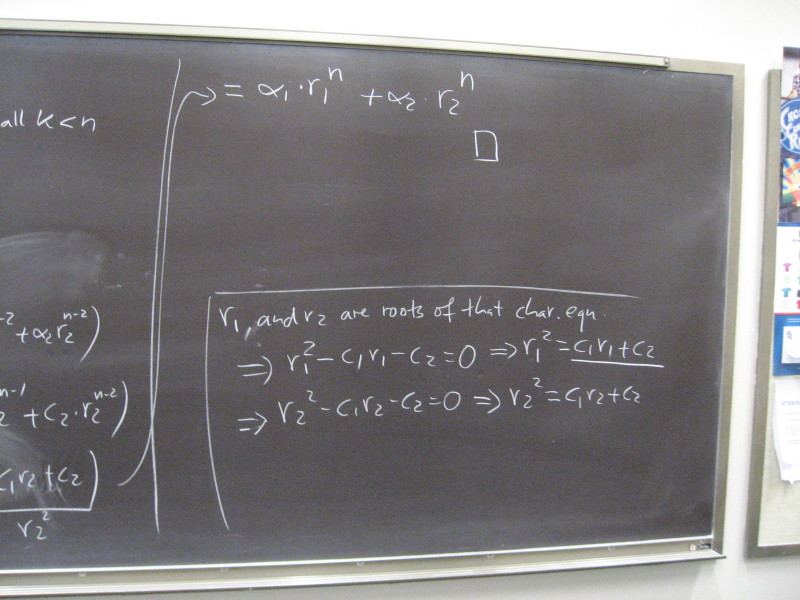 all k<n
-2 + α₂r₂ⁿ⁻²)
n-1 r₂ + c₂·r₂ⁿ⁻²)
c₁r₂+c₂)
r₂²
= α₁·r₁ⁿ + α₂·r₂ⁿ
□
r₁, and r₂ are roots of that char. eqn.
⇒ r₁² - c₁r₁ - c₂ = 0 ⇒ r₁² = c₁r₁+c₂
⇒ r₂² - c₁r₂ - c₂ = 0 ⇒ r₂² = c₁r₂+c₂